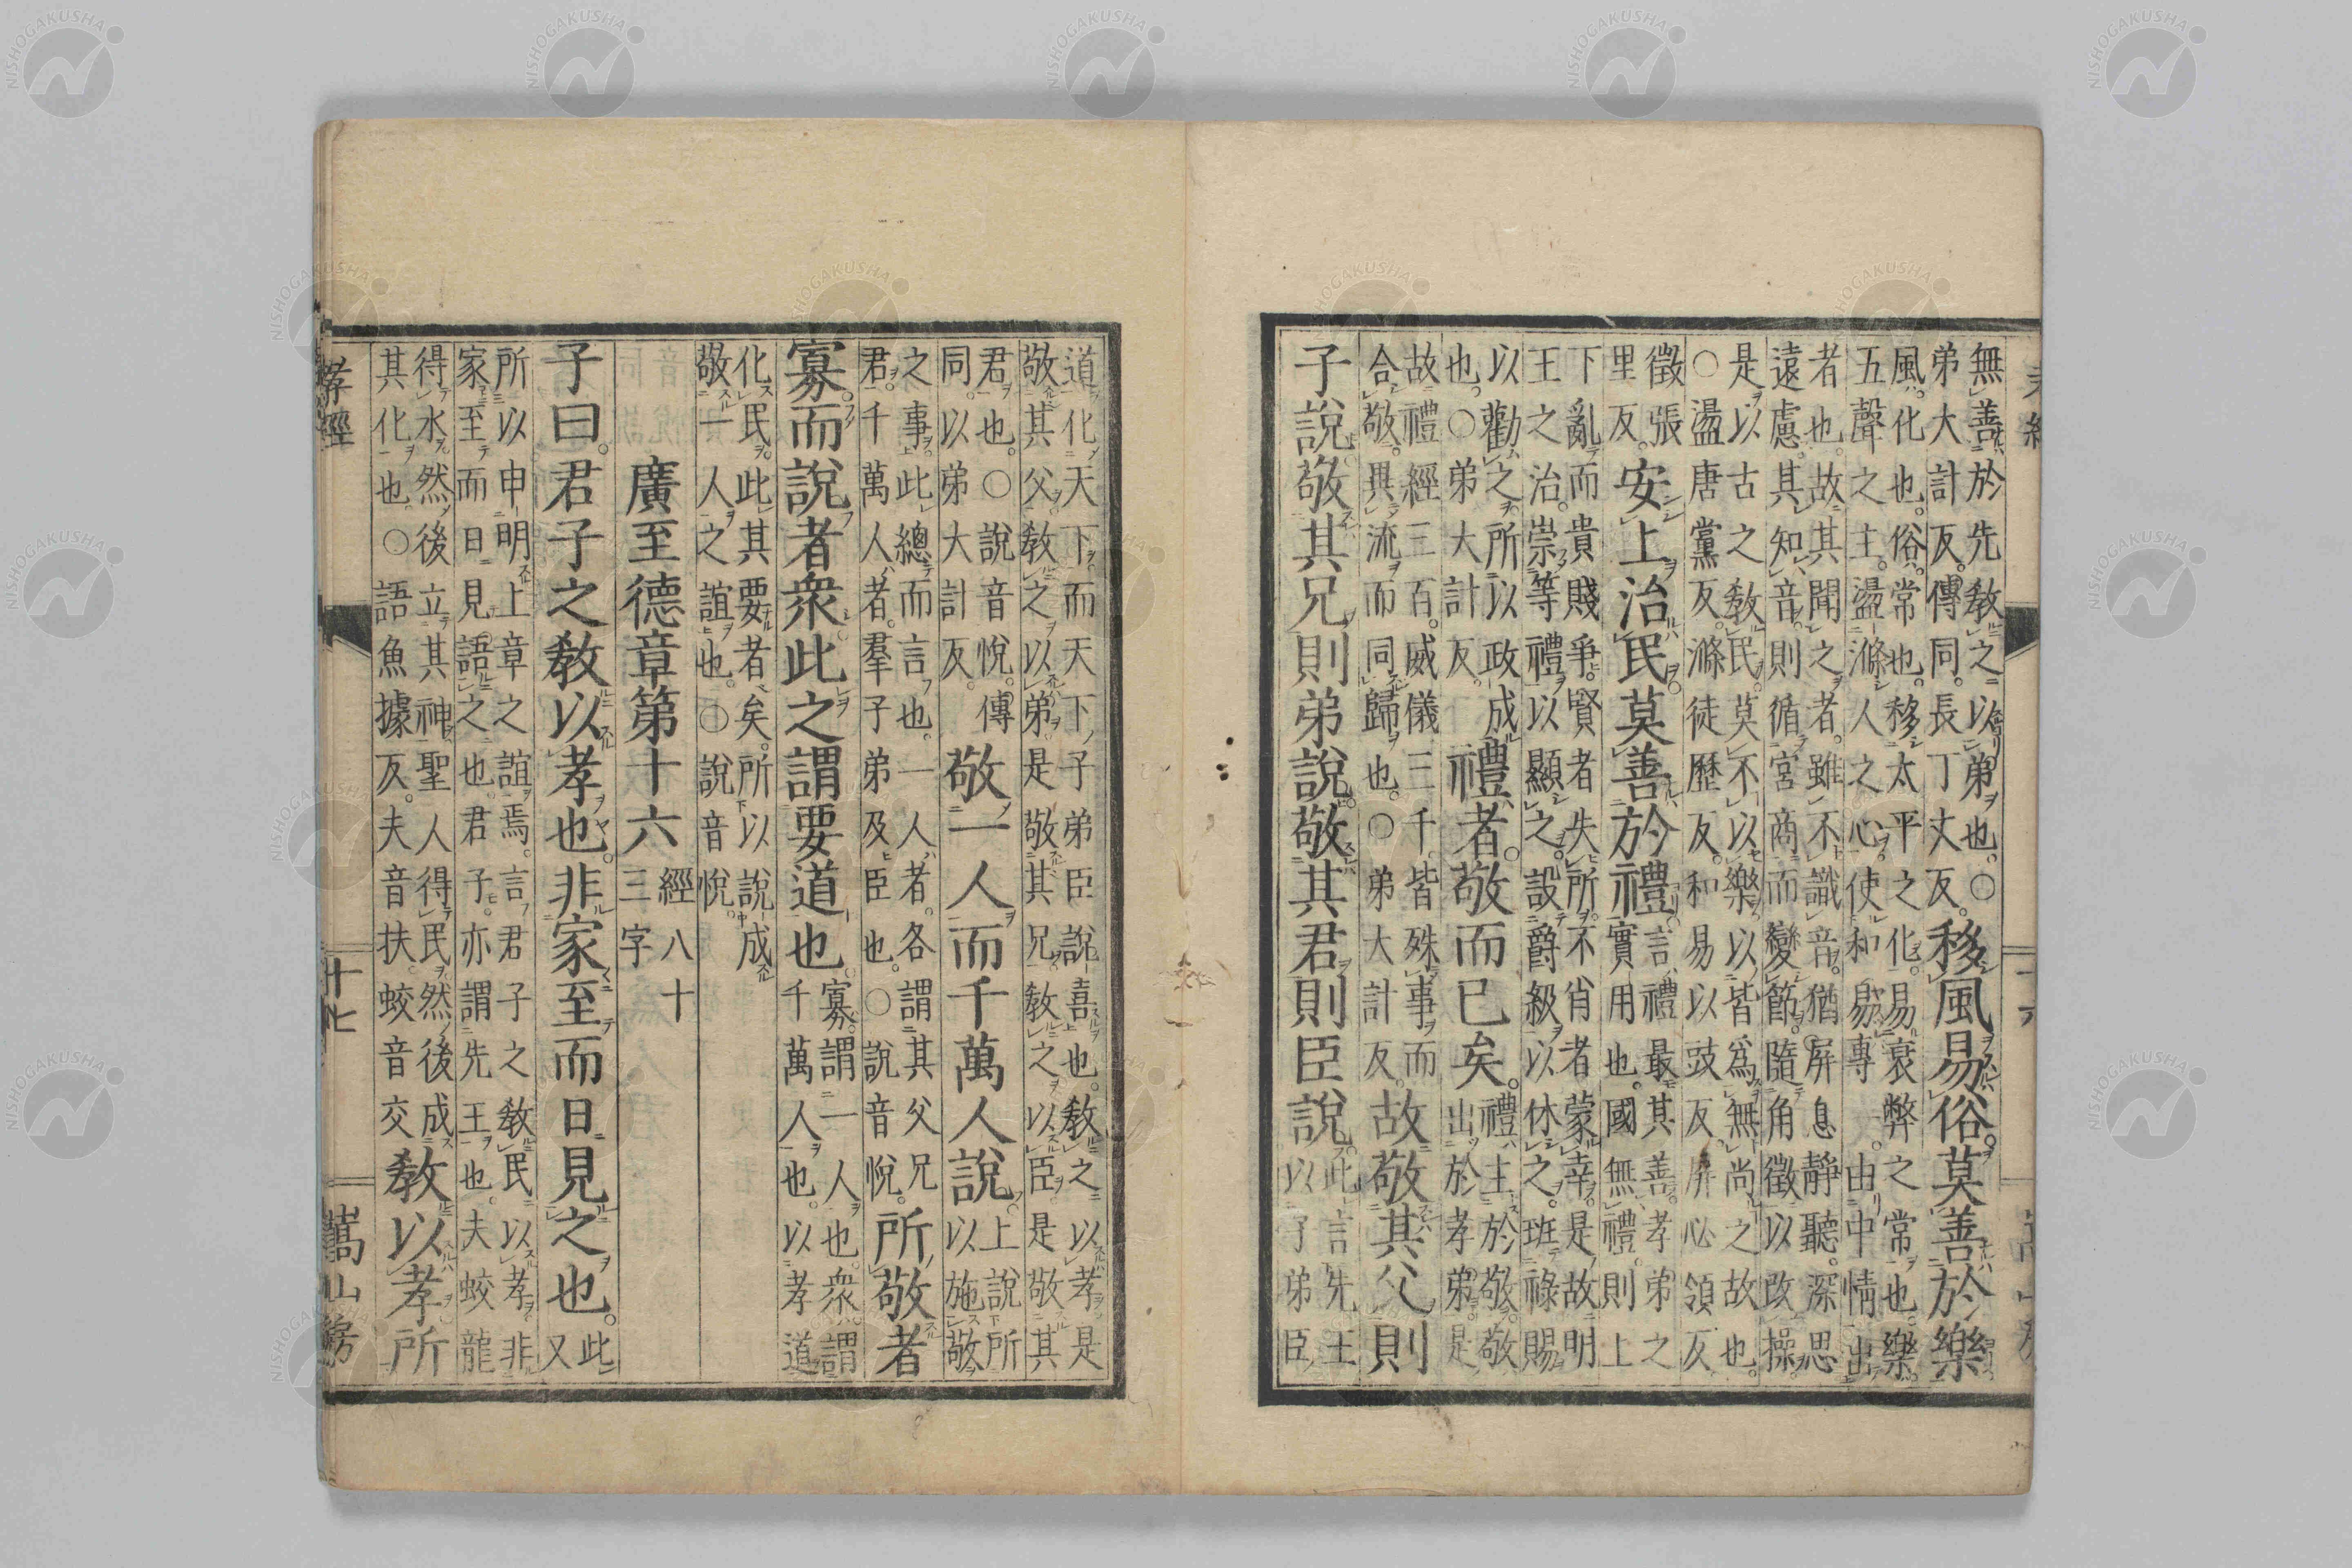 無善於先教之以弟也。○
弟大計反。傳同。長丁丈反。
移風易俗。莫善於樂
風。化也。俗。常也。移太平之化。易衰弊之常也。樂。
五聲之主。盪滌人之心。使和易專一。由中情出
者也。故其聞之者。雖不識音。猶屏息靜聽。深思
遠慮。其知音。則循宮商而變節。隨角徵以改操。
是以古之教民。莫不以樂。以皆爲無尚之故也。
○盪唐黨反。滌徒歷反。和易以豉反。屏必領反
徵張
里反。
安上治民。莫善於禮
言禮最其善。孝弟之
實用也。國無禮。則上
下亂而貴賤爭。賢者失所。不肖者蒙幸。是故明
王之治。崇等禮以顯之。設爵級以休之。班祿賜
以勸之。所以政成
也。○弟大計反。
禮者。敬而已矣。
禮主於敬。敬
出於孝弟。是
故禮經三百。威儀三千。皆殊事而
合敬。異流而同歸也。○弟大計反。
故敬其父則
子說。敬其兄。則弟說。敬其君。則臣說
此言先王
以子弟臣
道化天下。而天下子弟臣說喜也。教之以孝。是
敬其父。教之以弟。是敬其兄。教之以臣。是敬其
君也。○說音悅。傳
同。以弟大計反。
敬一人而千萬人說。
上說所
以施敬
之事。此總而言也。一人者。各謂其父兄
君。千萬人者。羣子弟及臣也。○說音悅。
所敬者
寡。而說者衆。此之謂要道也
寡。謂一人也。衆。謂
千萬人也。以孝道
化民。此其要者矣。所以說成
敬一人之誼也。○說音悅。
廣至德章第十六
經八十
三字
子曰。君子之教以孝也。非家至而日見之也。
此
又
所以申明上章之誼焉。言君子之教民以孝。非
家至而日見語之也。君子。亦謂先王也。夫蛟龍
得水。然後立其神。聖人得民。然後成
其化也。○語魚據反。夫音扶。蛟音交
教以孝所
孝經
十七
嵩山房
NISHOGAKUSHA